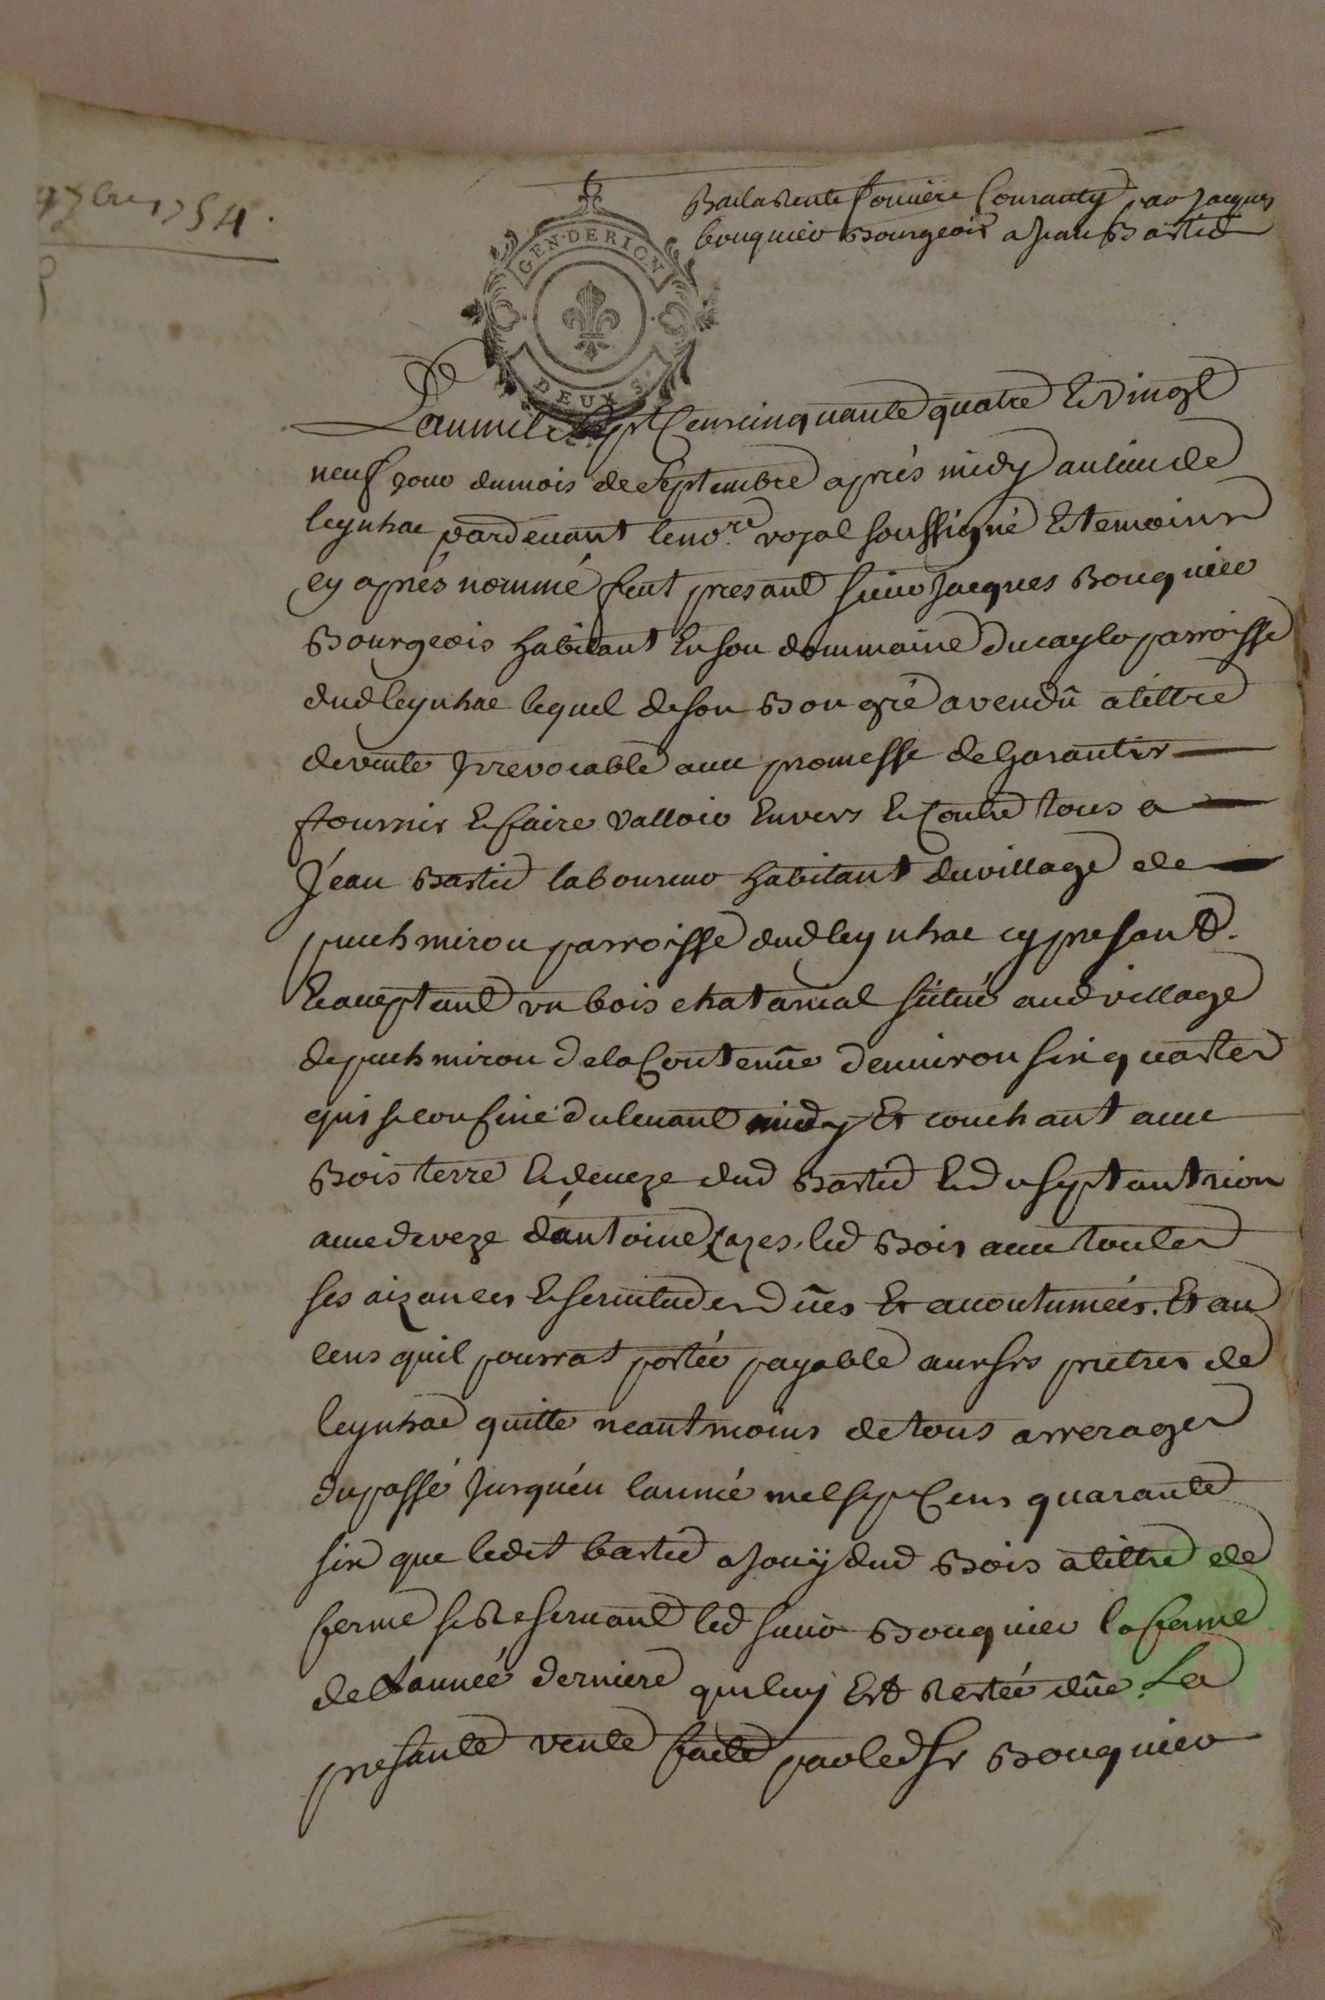 97bre 1754.
Bail a Rente fonciere Consanty par Jacques
bouquier Bourgeois a Jean Bastid
GEN. DE RION
DEUX S.
L'an mil sept Cens cinquante quatre Et vingt
neuf jour du mois de Septembre aprés midy au lieu de
leynhac pardevant le no.re royal soussigné Et temoins
cy aprés nommé feut presant sieur Jacques Bouquier
Bourgeois habitant En son dommaine du caylo parroisse
dud leynhac lequel de son Bon gré a vendû a tittre
de vente Jrrevocable avec promesse de Garantir
fournir Et faire valloir Envers Et Contre tous a
Jean Bastid laboureur habitant du village de
puech mirou parroisse dud leynhac cy presant.
Et aceptant un bois chatanial sittué aud village
de puech mirou de la Contenûe denviron six quartes
qui se confine du levant midy Et couchant avec
Bois terre Et deveze dud Bastid Et du septantrion
avec deveze d'antoine Cazes, led Bois avec toutes
ses aizances Et servitudes dûes Et accoutumées. Et au
Cens quil pourrat portér payable aux srs pretres de
leynhac quitte neantmoins de tous arrerages
du passé Jusqu'en l'année mil sept Cens quarante
six que ledit bastid a Jouÿ dud Bois a tittre de
ferme se Reservant led sieur Bouquier la ferme
de L'année derniere qui luy Est Restée dûe. La
presante vente faite par led Sr Bouquier